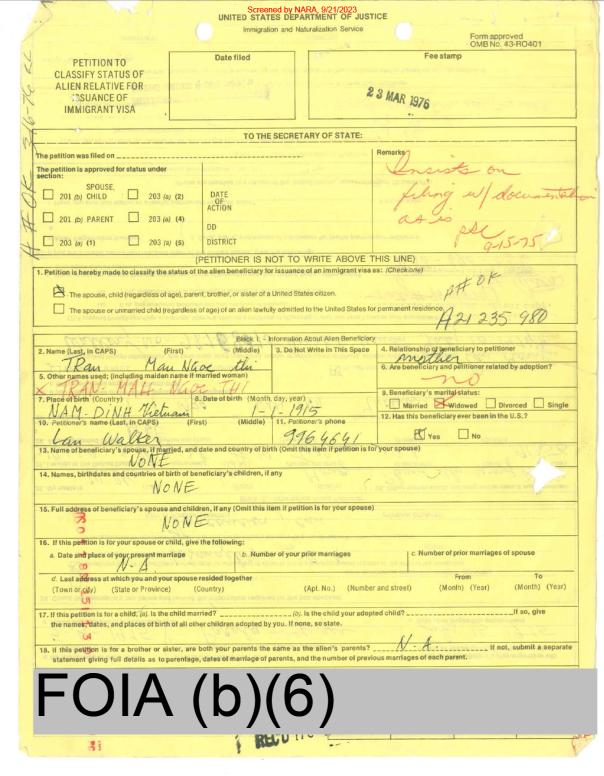 Screened by NARA, 9/21/2023
UNITED STATES DEPARTMENT OF JUSTICE
Immigration and Naturalization Service
Form approved
OMB No. 43-RO401
PETITION TO
CLASSIFY STATUS OF
ALIEN RELATIVE FOR
ISSUANCE OF
IMMIGRANT VISA
Date filed
Fee stamp
23 MAR 1976
TO THE SECRETARY OF STATE:
The petition was filed on
The petition is approved for status under section:
SPOUSE,
201 (b) CHILD 203 (a) (2)
201 (b) PARENT 203 (a) (4)
203 (a) (1) 203 (a) (5)
DATE
OF
ACTION
DD
DISTRICT
Remarks
Insists on
filing w/ documentation
as is
9-15-75
(PETITIONER IS NOT TO WRITE ABOVE THIS LINE)
1. Petition is hereby made to classify the status of the alien beneficiary for issuance of an immigrant visa as: (Check one)
The spouse, child (regardless of age), parent, brother, or sister of a United States citizen.
The spouse or unmarried child (regardless of age) of an alien lawfully admitted to the United States for permanent residence.
A# OK
A21 235 980
Block I. - Information About Alien Beneficiary
2. Name (Last, in CAPS) (First) (Middle)
TRan Mau Ngoc thi
3. Do Not Write in This Space
4. Relationship of beneficiary to petitioner
mother
5. Other names used; (including maiden name if married woman)
X TRAN- MAU NGOC THI
6. Are beneficiary and petitioner related by adoption?
no
7. Place of birth (Country)
NAM-DINH Vietnam
8. Date of birth (Month, day, year)
1-1-1915
9. Beneficiary's marital status:
Married Widowed Divorced Single
10. Petitioner's name (Last, in CAPS) (First) (Middle)
Lan Walker
11. Petitioner's phone
9964641
12. Has this beneficiary ever been in the U.S.?
Yes No
13. Name of beneficiary's spouse, if married, and date and country of birth (Omit this item if petition is for your spouse)
NONE
14. Names, birthdates and countries of birth of beneficiary's children, if any
NONE
15. Full address of beneficiary's spouse and children, if any (Omit this item if petition is for your spouse)
NONE
16. If this petition is for your spouse or child, give the following:
a. Date and place of your present marriage
N.A.
b. Number of your prior marriages
c. Number of prior marriages of spouse
d. Last address at which you and your spouse resided together From To
(Town or city) (State or Province) (Country) (Apt. No.) (Number and street) (Month) (Year) (Month) (Year)
17. If this petition is for a child, (a). Is the child married? (b). Is the child your adopted child? If so, give
the names, dates, and places of birth of all other children adopted by you. If none, so state.
18. If this petition is for a brother or sister, are both your parents the same as the alien's parents? N.A. If not, submit a separate
statement giving full details as to parentage, dates of marriage of parents, and the number of previous marriages of each parent.
FOIA (b)(6)
REC'D